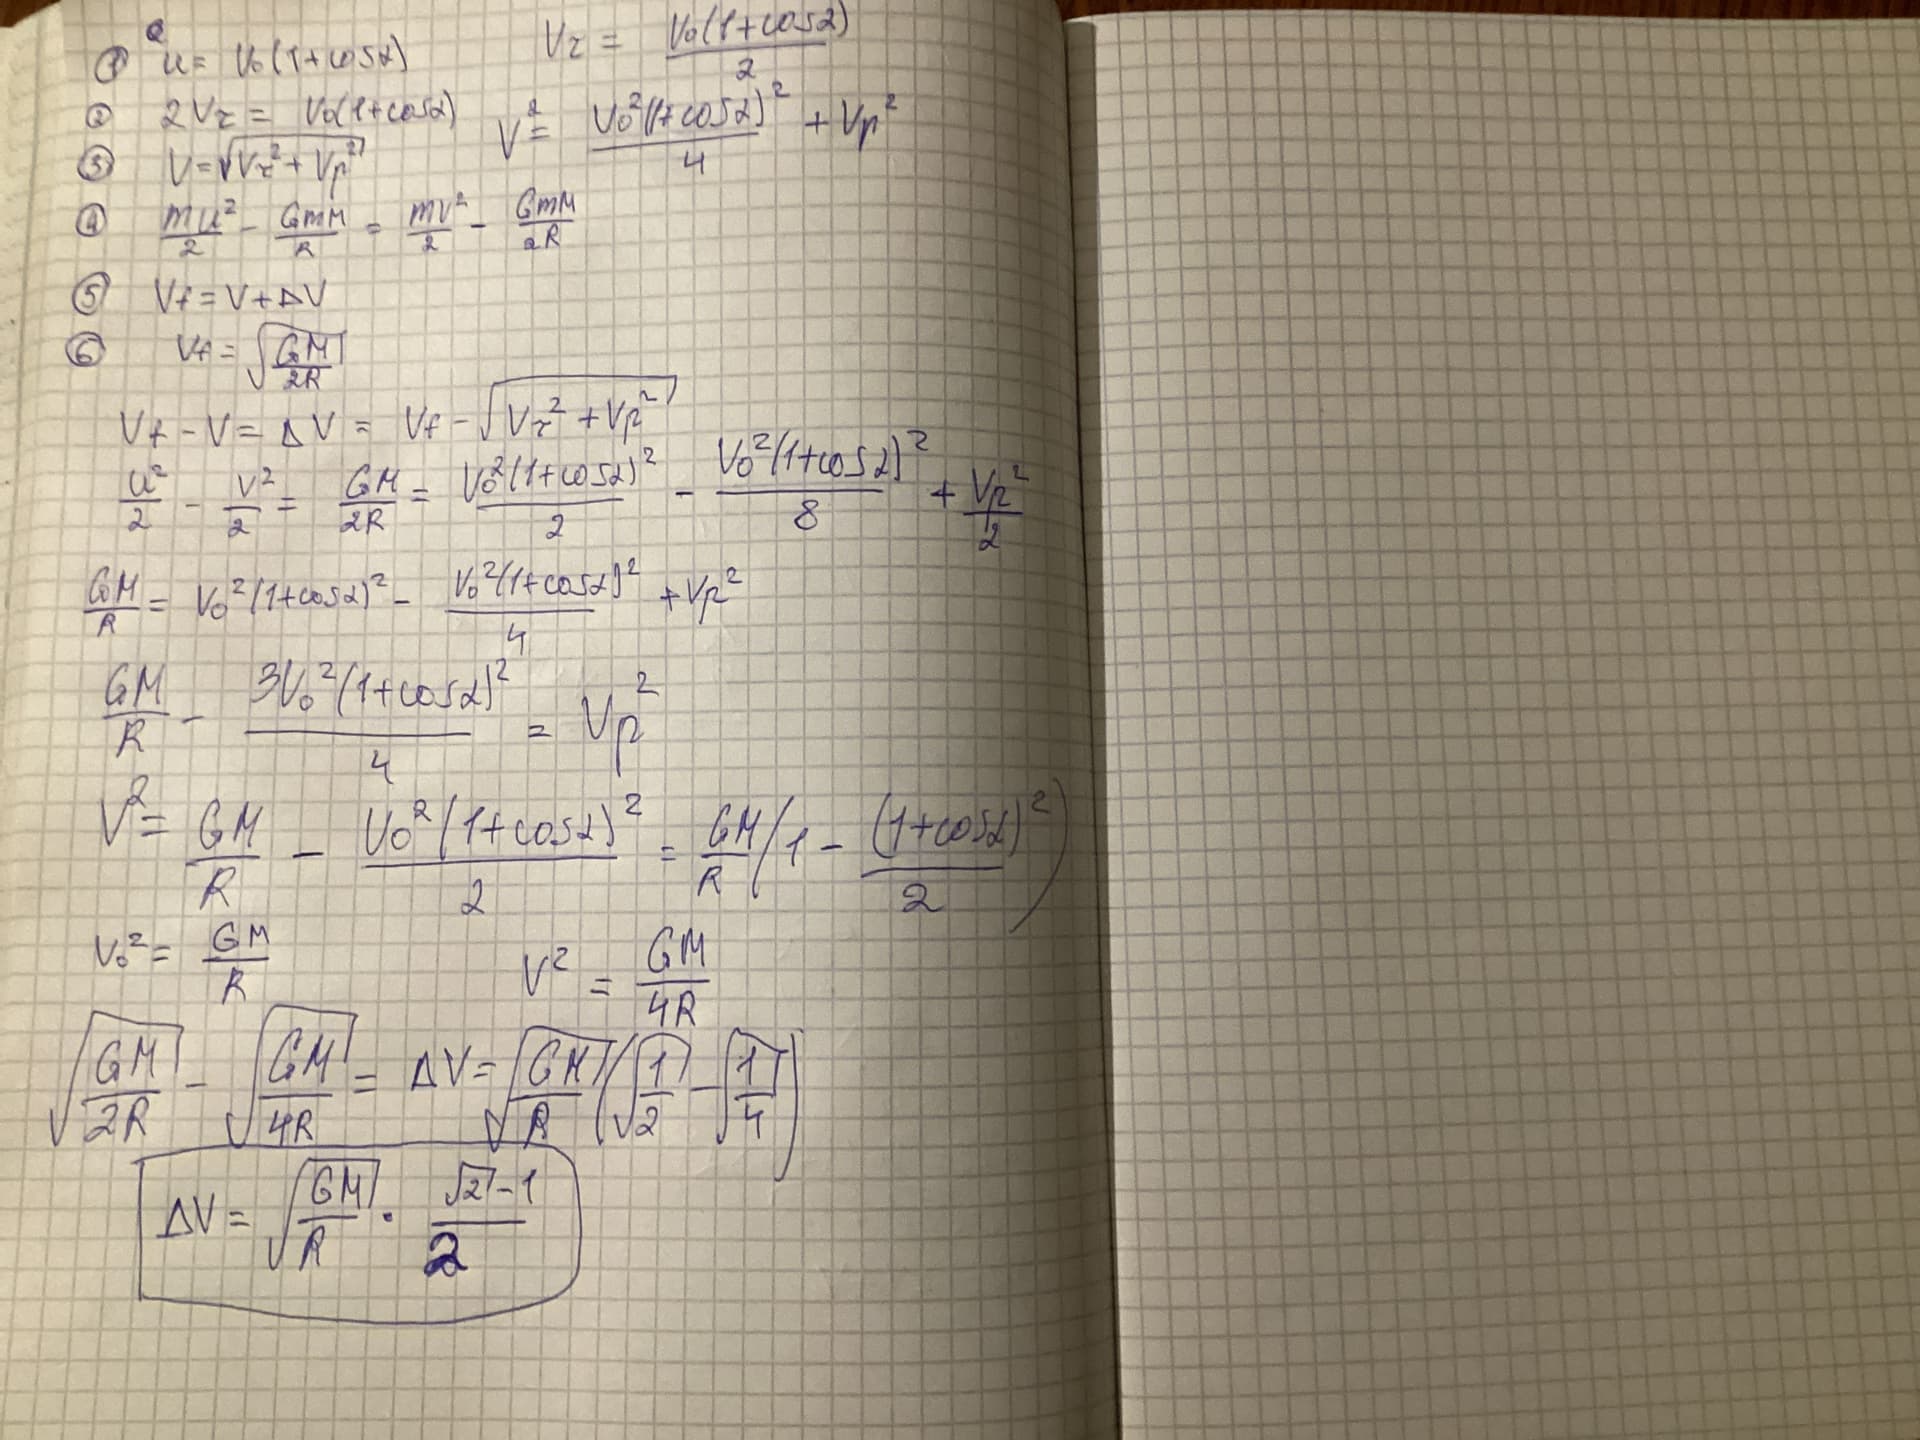 ① u = V₀(1+cosα)     Vτ = V₀(1+cosα)/2
② 2Vτ = V₀(1+cosα)     V² = V₀²(1+cosα)²/4 + Vp²
③ V = √(Vτ² + Vp²)
④ mu²/2 - GmM/R = mV²/2 - GmM/2R
⑤ Vf = V + ΔV
⑥ Vf = √(GM/2R)
Vf - V = ΔV = Vf - √(Vτ² + Vp²)
u²/2 - V²/2 = GM/2R = V₀²(1+cosα)²/2 - V₀²(1+cosα)²/8 + Vp²/2
GM/R = V₀²(1+cosα)² - V₀²(1+cosα)²/4 + Vp²
GM/R - 3V₀²(1+cosα)²/4 = Vp²
V² = GM/R - V₀²(1+cosα)²/2 = GM/R (1 - (1+cosα)²/2)
V₀² = GM/R     V² = GM/4R
√(GM/2R) - √(GM/4R) = ΔV = √(GM/R) (√(1/2) - √(1/4))
ΔV = √(GM/R) · (√2 - 1)/2